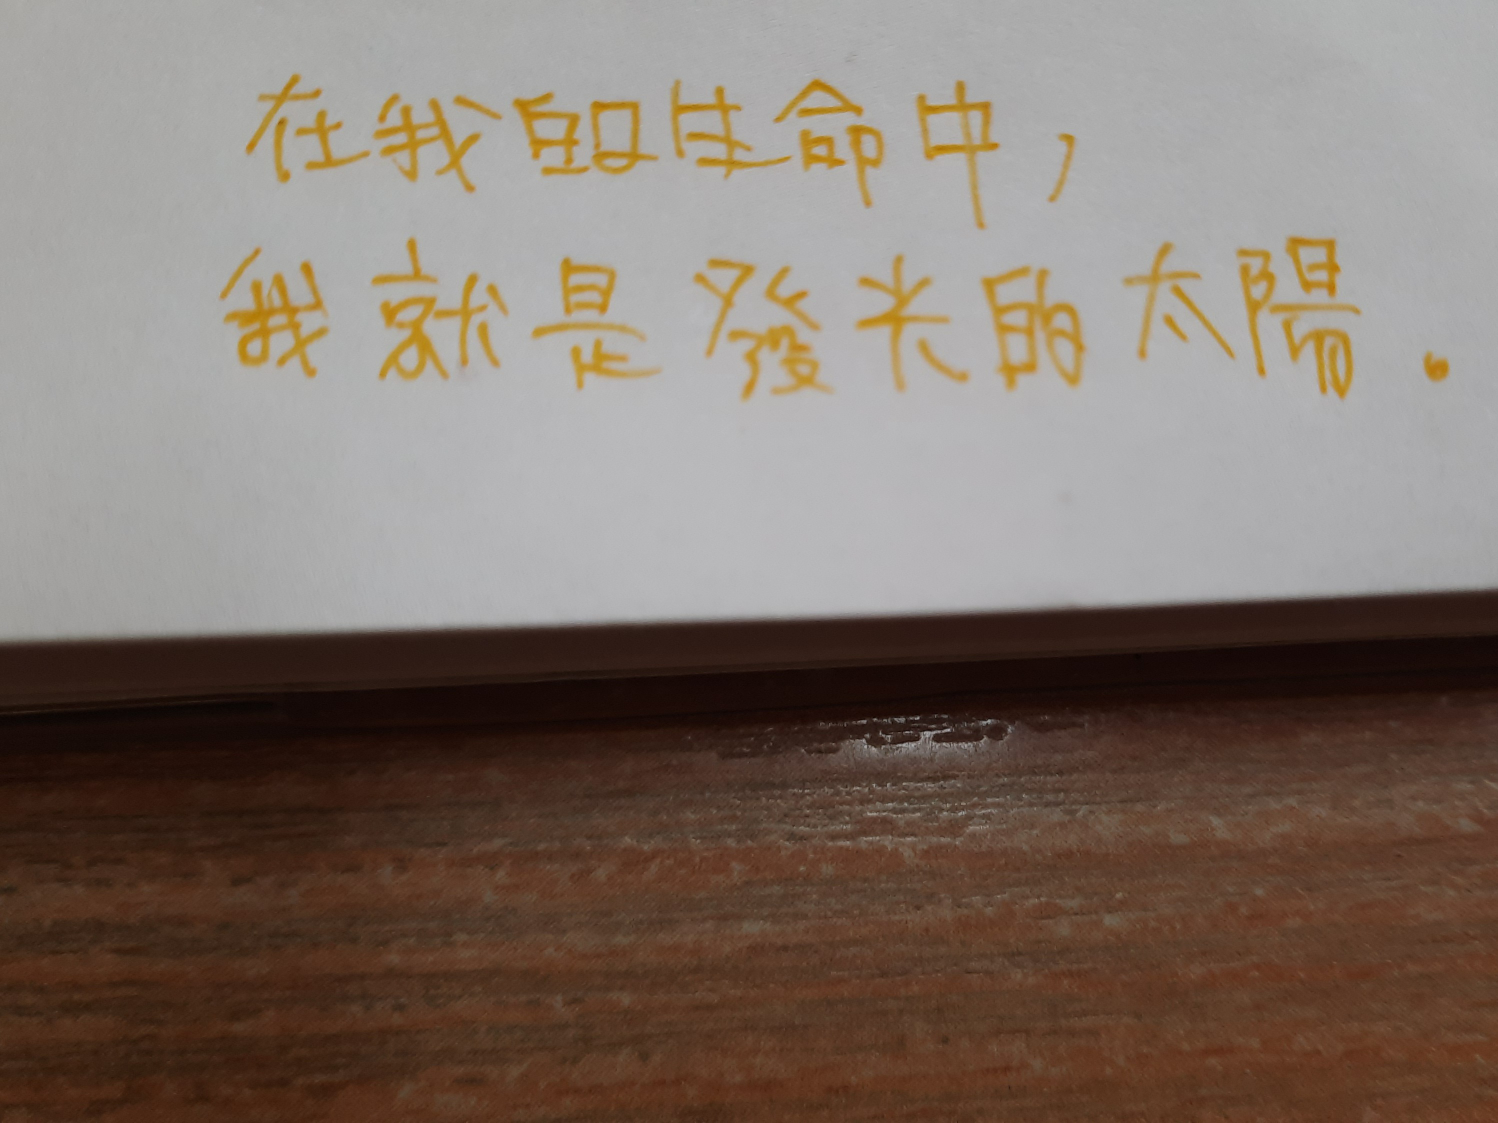 在我的生命中，
我就是發光的太陽。